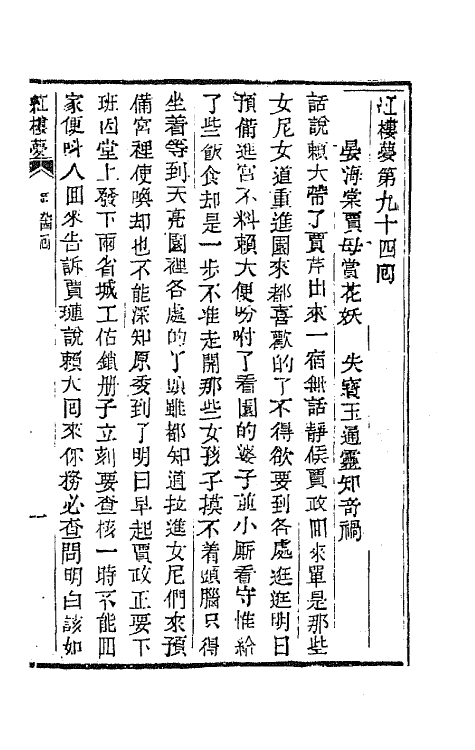 紅樓夢第九十四囘
晏海棠賈母賞花妖 失寳玉通靈知竒禍
話說賴大帶了賈芹出來一宿無話靜候賈政囘來單是那些
女尼女道重進園來都喜歡的了不得欲要到各處逛逛明日
預備進宫不料賴大便吩咐了看園的婆子並小厮看守惟給
了些飯食却是一步不准走開那些女孩子摸不着頭腦只得
坐着等到天亮園裡各處的丫頭雖都知道拉進女尼們來預
備宫裡使喚却也不能深知原委到了明日早起賈政正要下
班因堂上發下兩省城工估銷册子立刻要查核一時不能囘
家便呌人囬來告訴賈璉說賴大囘來你務必查問明白該如
紅樓夢 囘
一